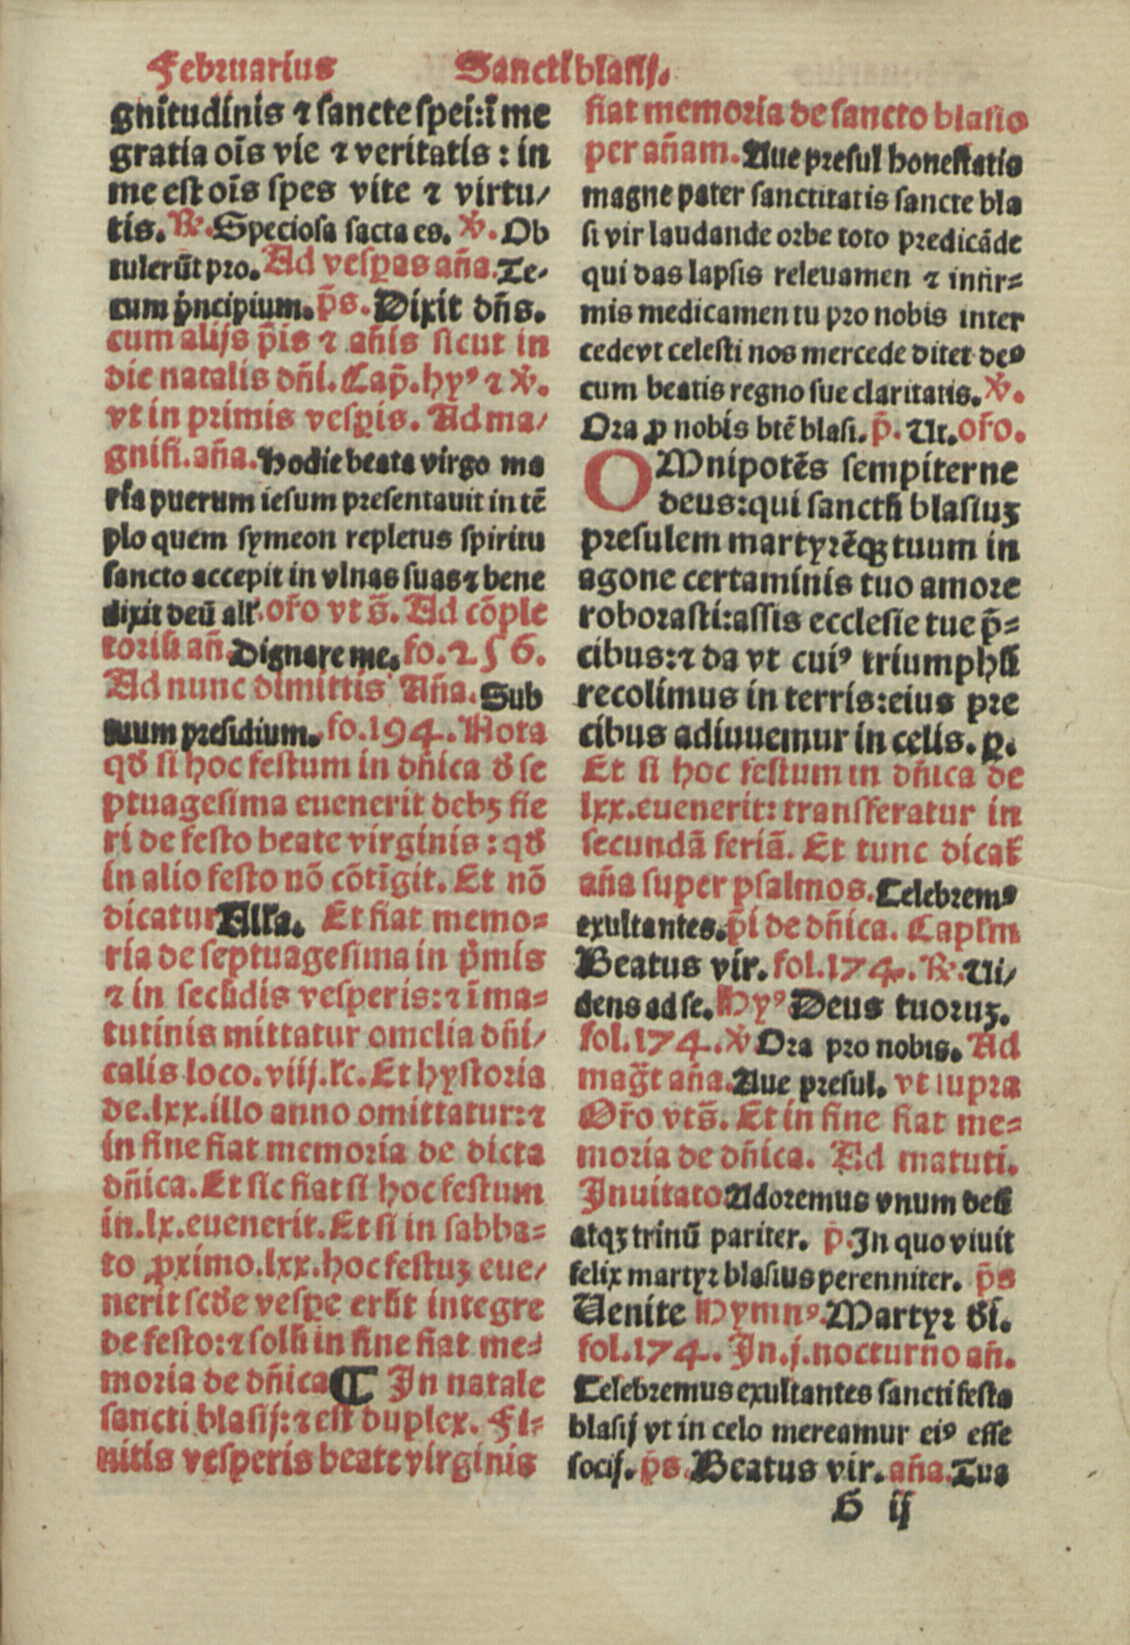 Februarius Sancti blasij.
gnitudinis ⁊ sancte spei: ī me
gratia oīs vie ⁊ veritatis: in
me est oīs spes vite ⁊ virtu/
tis. ℟. Speciosa facta es. ℣. Ob
tulerūt pro. Ad vesꝑas añа. Te-
cum pͥncipium. p̄s. Dixit dn̄s.
cum alijs p̄is ⁊ an̄is sicut in
die natalis dn̄i. Cap̄. hyꝰ ⁊ ℣.
vt in primis vesꝑis. Ad ma/
gnifi. an̄a. Hodie beata virgo ma
ria puerum iesum presentauit in tē
plo quem symeon repletus spiritu
sancto accepit in vlnas suas ⁊ bene
dixit deū all'. or̄o vt s̄. Ad cōple
toriū an̄. Dignare me. fo. 256.
Ad nunc dimittis An̄a. Sub
tuum presidium. fo. 194. Nota
qđ si hoc festum in dn̄ica đ se
ptuagesima euenerit debꝫ fie
ri de festo beate virginis: qđ
in alio festo nō cōtīgit. Et nō
dicatur Alľa. Et fiat memo=
ria de septuagesima in pͥmis
⁊ in secūdis vesperis: ⁊ ī ma=
tutinis mittatur omelia dn̄i/
calis loco. viij. lc̄. Et hystoria
de. lxx. illo anno omittatur: ⁊
in fine fiat memoria de dicta
dn̄ica. Et sic fiat si hoc festum
in. lx. euenerit. Et si in sabba=
to ꝓximo. lxx. hoc festuꝫ eue/
nerit scđe vesꝑe erūt integre
de festo: ⁊ solū in fine fiat me=
moria de dn̄ica ¶ In natale
sancti blasij: ⁊ est duplex. Fi=
nitis vesperis beate virginis
fiat memoria de sancto blasio
per an̄am. Aue presul honestatis
magne pater sanctitatis sancte bla
si vir laudande orbe toto predicāde
qui das lapsis releuamen ⁊ infir=
mis medicamen tu pro nobis inter
cede vt celesti nos mercede ditet deꝰ
cum beatis regno sue claritatis. ℣.
Ora ꝓ nobis btē blasi. p̄. Ut. or̄o.
OMnipotēs sempiterne
deus: qui sanctū blasiuꝫ
presulem martyrēqꝫ tuum in
agone certaminis tuo amore
roborasti: assis ecclesie tue p̄=
cibus: ⁊ da vt cuiꝰ triumphū
recolimus in terris: eius pre
cibus adiuuemur in celis. ꝑ.
Et si hoc festum in dn̄ica de
lxx. euenerit: transferatur in
secundā feriā. Et tunc dicat̄
an̄a super psalmos. Celebremꝰ
exultantes. p̄i de dn̄ica. Capľm
Beatus vir. fol. 174. ℟. Ui/
dens ad se. Hyꝰ Deus tuoruꝫ.
fol. 174. ℣ Ora pro nobis. Ad
maḡt an̄a. Aue presul. vt supra
Or̄o vt s̄. Et in fine fiat me=
moria de dn̄ica. Ad matuti.
Inuitato Adoremus vnum deū
atqꝫ trinū pariter. p̄. In quo viuit
felix martyr blasius perenniter. p̄s
Uenite Hymnꝰ. Martyr đi.
fol. 174. In. j. nocturno an̄.
Celebremus exultantes sancti festa
blasij vt in celo mereamur eiꝰ esse
socij. p̄s. Beatus vir. an̄a. Tua
G ij